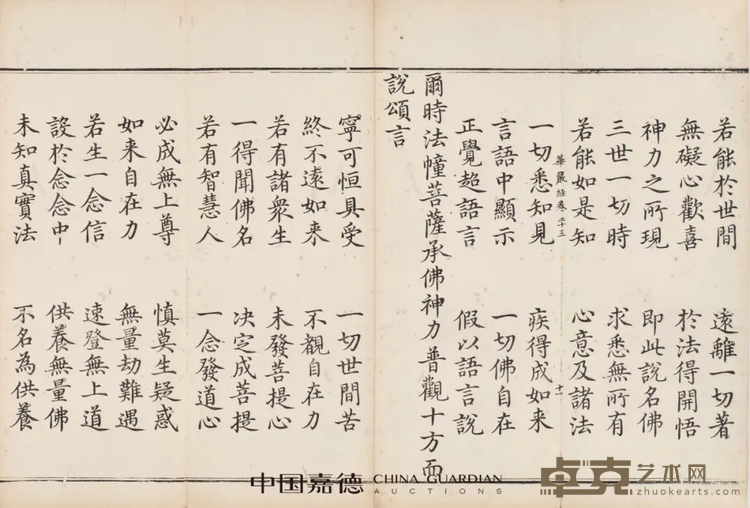 若能於世間　遠離一切著
無礙心歡喜　於法得開悟
神力之所現　即此說名佛
三世一切時　求悉無所有
若能如是知　心意及諸法
華嚴經卷二十三　十一
一切悉知見　疾得成如来
言語中顯示　一切佛自在
正覺超語言　假以語言說
爾時法幢菩薩承佛神力普觀十方而
說頌言
寧可恒具受　一切世間苦
終不遠如来　不覩自在力
若有諸衆生　未發菩提心
一得聞佛名　决定成菩提
若有智慧人　一念發道心
必成無上尊　慎莫生疑惑
如来自在力　無量劫難遇
若生一念信　速登無上道
設於念念中　供養無量佛
未知真實法　不名為供養
中国嘉德 CHINA GUARDIAN
AUCTIONS
卓克艺术网
zhuokearts.com